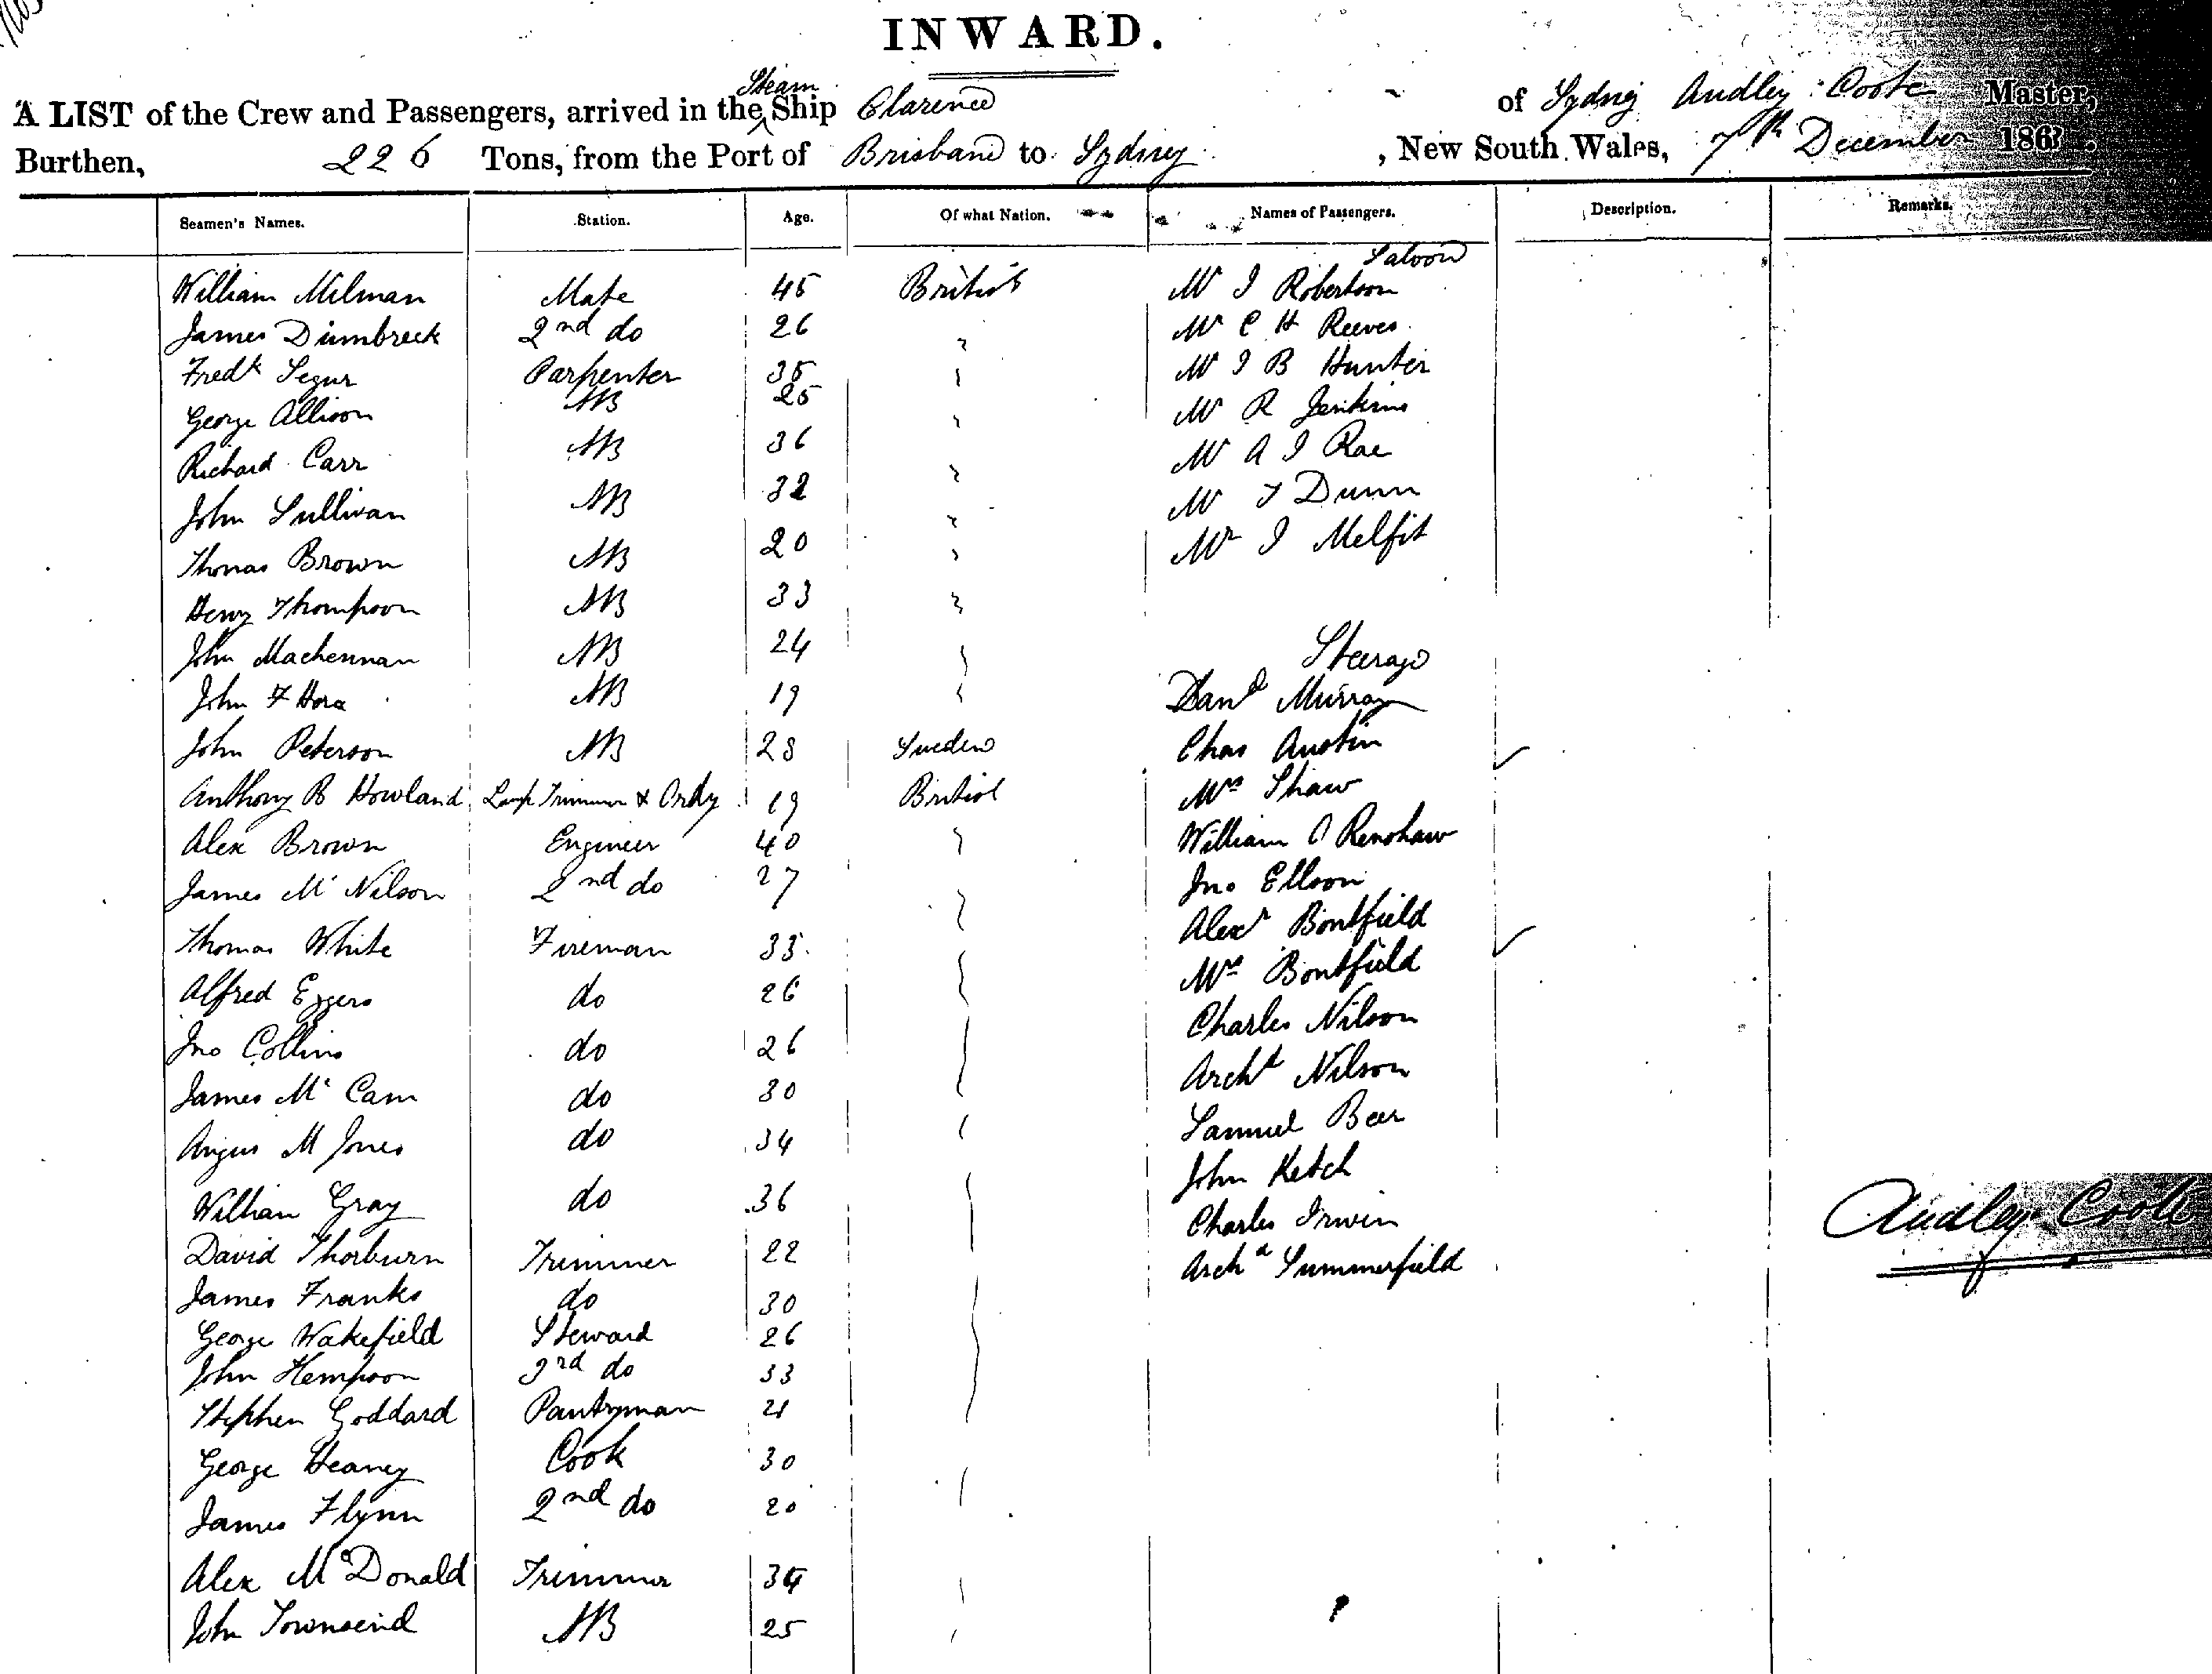 INWARD.
Steam
A LIST of the Crew and Passengers, arrived in the Ship Clarence of Sydney Audley Coote Master,
Burthen, 226 Tons, from the Port of Brisbane to Sydney, New South Wales, 7th December 1863.
Seamen's Names. Station. Age. Of what Nation. Names of Passengers. Description. Remarks.
Saloon
William Milman Mate 45 British Mr J Robertson
James Dumbreck 2nd do 26 " Mr C H Reeves
Fredk Segur Carpenter 35 " Mr J B Hunter
George Allison AB 25 " Mr R Jenkins
Richard Carr AB 36 " Mr A J Rae
John Sullivan AB 32 " Mr T Dunn
Thomas Brown AB 20 " Mr J Melfit
Henry Thompson AB 33 "
John Mackennan AB 24 " Steerage
John F Hora AB 19 " Danl Murray
John Peterson AB 28 Sweden Chas Austin
Anthony B Howland Lamp Trimmer & Ordy 19 British Mrs Shaw
Alex Brown Engineer 40 " William C Renshaw
James Mc Nilson 2nd do 27 " Jno Ellson
Thomas White Fireman 33 " Alexr Bontfield
Alfred Eggers do 26 " Mrs Bontfield
Jno Collins do 26 " Charles Nilson
James Mc Cam do 30 " Archd Nilson
Angus M Jones do 34 " Samuel Beer
William Gray do 36 " John Ketch
David Thorburn Trimmer 22 " Charles Irwin
James Franks do 30 " Archd Summerfield
Audley Coote
George Wakefield Steward 26 "
John Hempson 3rd do 33 "
Stephen Goddard Pantryman 21 "
George Heaney Cook 30 "
James Flynn 2nd do 20 "
Alex McDonald Trimmer 34 "
John Townsend AB 25 "